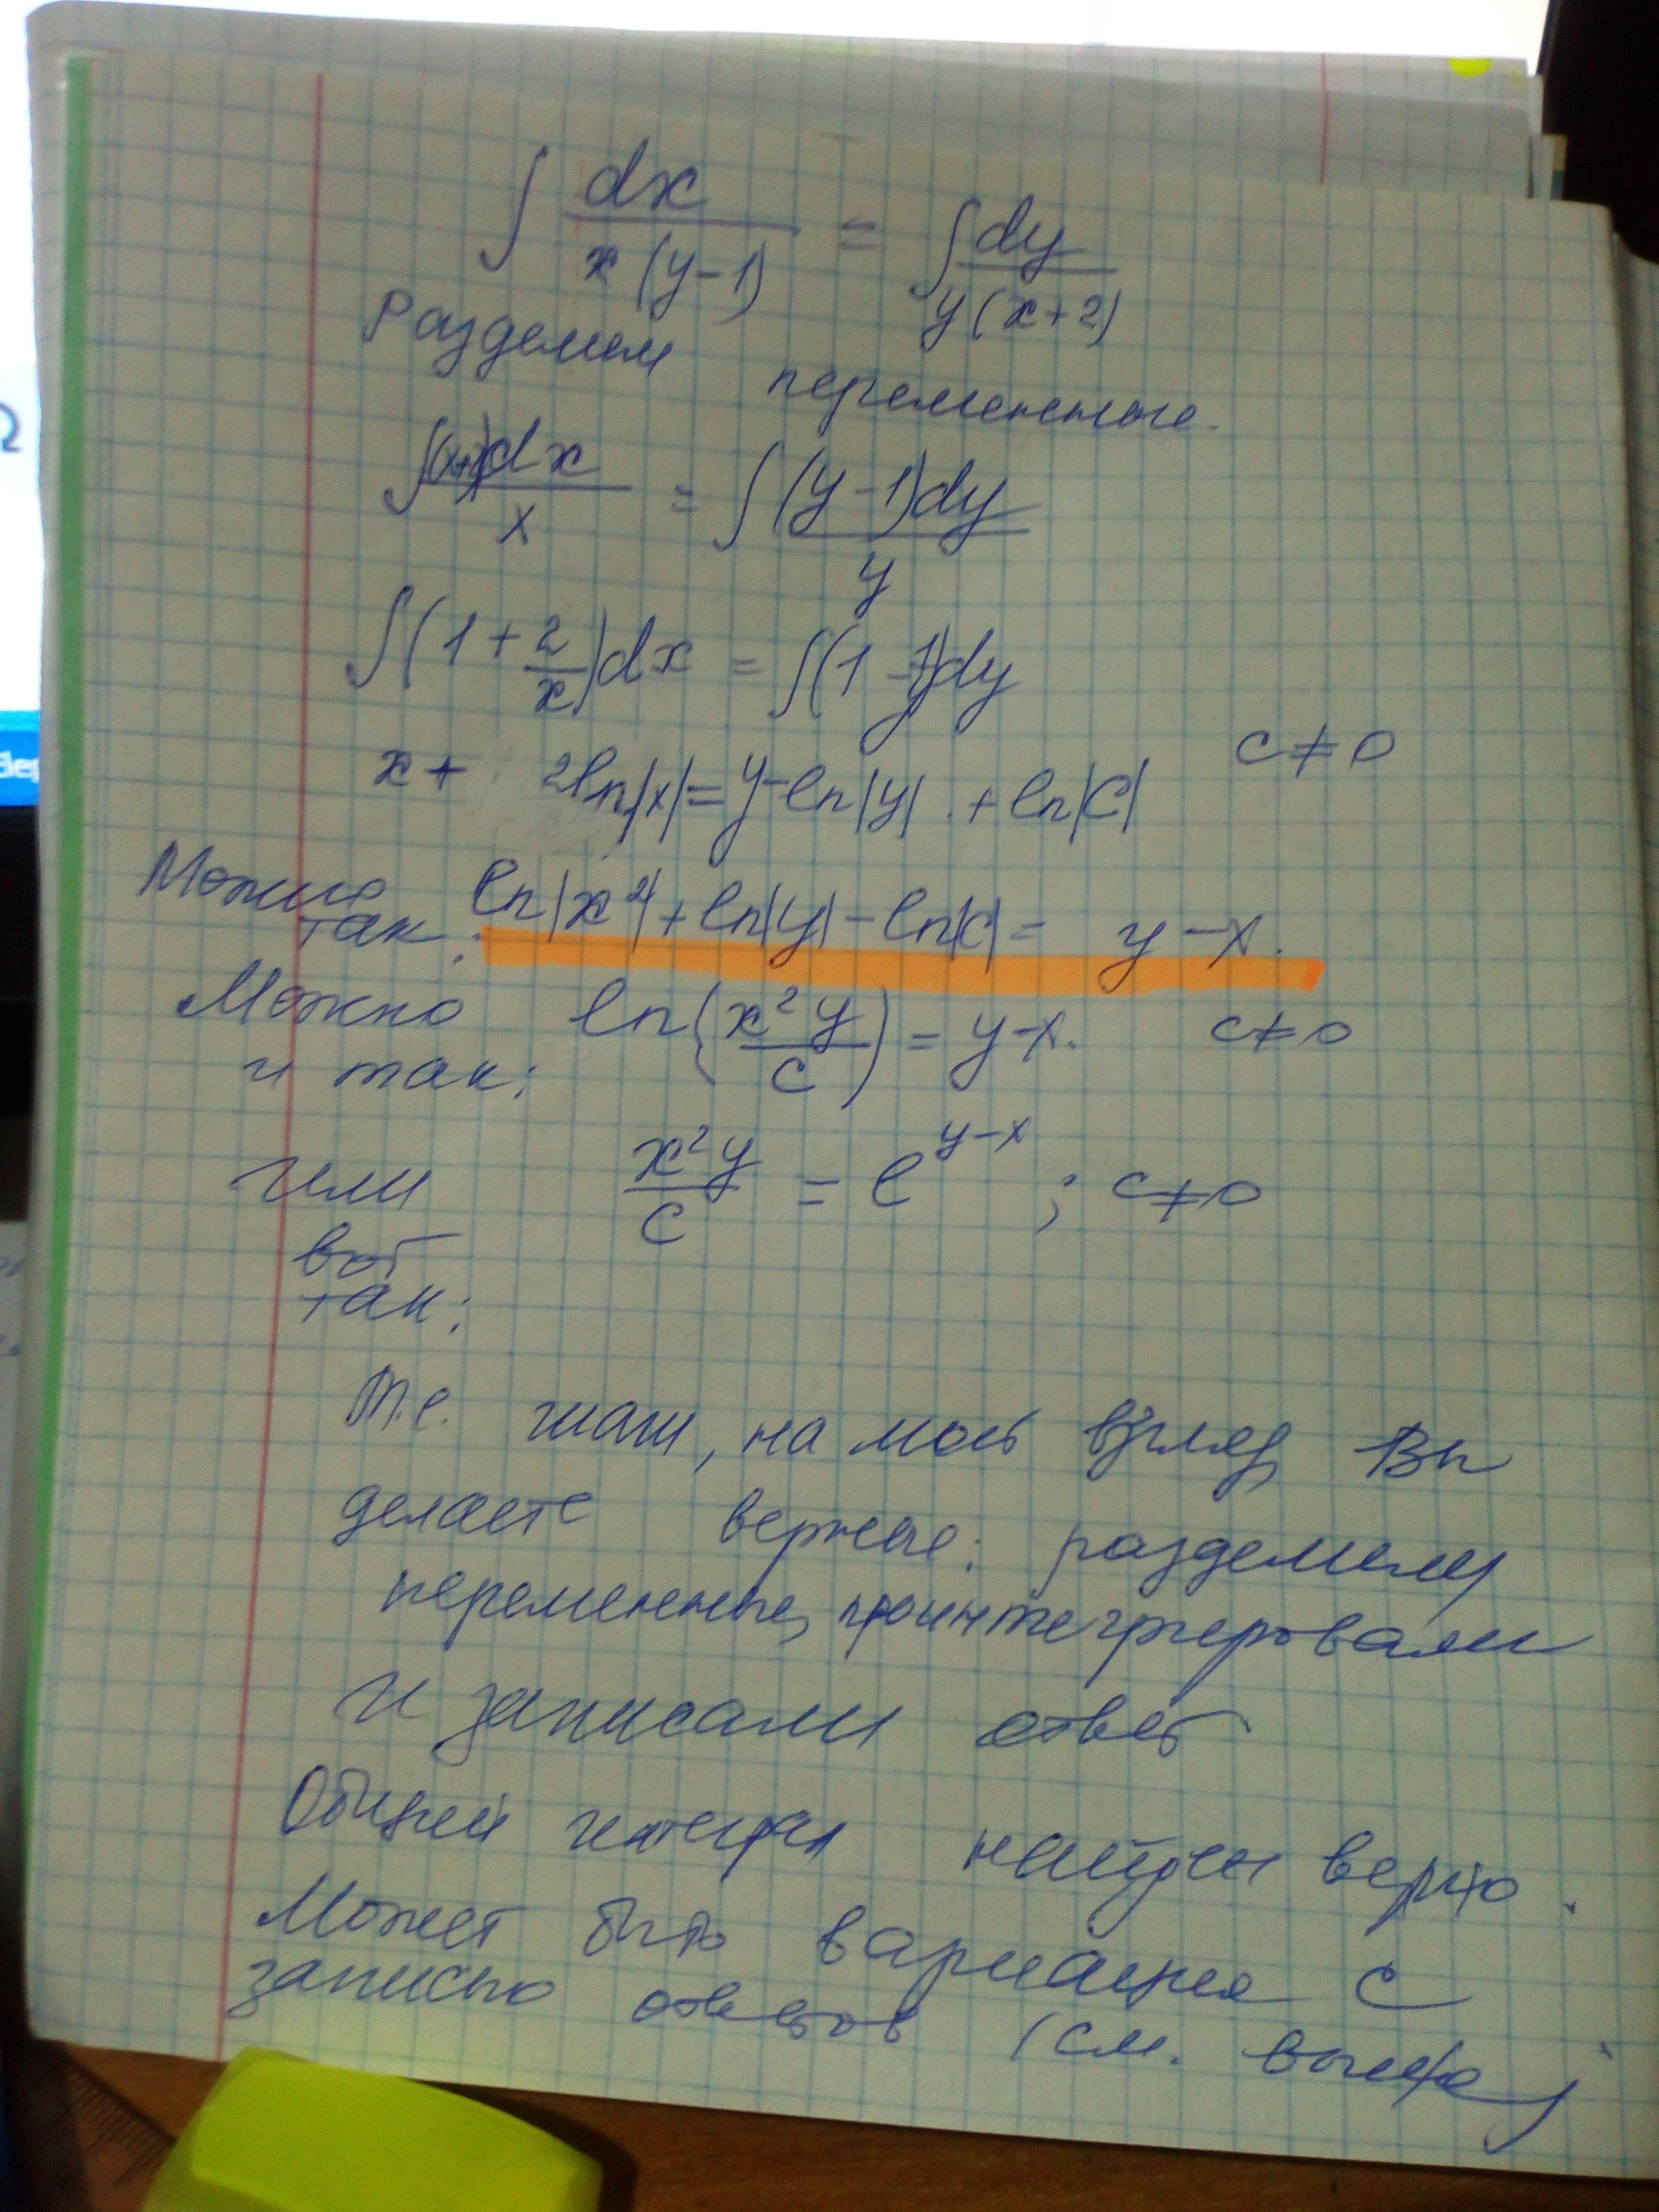 ∫ dx / x(y-1) = ∫ dy / y(x+2)
Разделим переменные.
∫ (x+2)dx / x = ∫ (y-1)dy / y
∫(1 + 2/x)dx = ∫(1 - 1/y)dy
x + 2ln|x| = y - ln|y| + ln|C|   c≠0
Можно так: ln|x²| + ln|y| - ln|c| = y - x.
Можно и так: ln(x²y / c) = y - x.   c≠0
или вот так: x²y / c = e^(y-x) ; c≠0
Т.е. шаги, на мой взгляд, Вы
делаете верные: разделили
переменные, проинтегрировали
и записали ответ
Общий интеграл найден верно.
Может быть вариация с
записью ответов (см. выше)